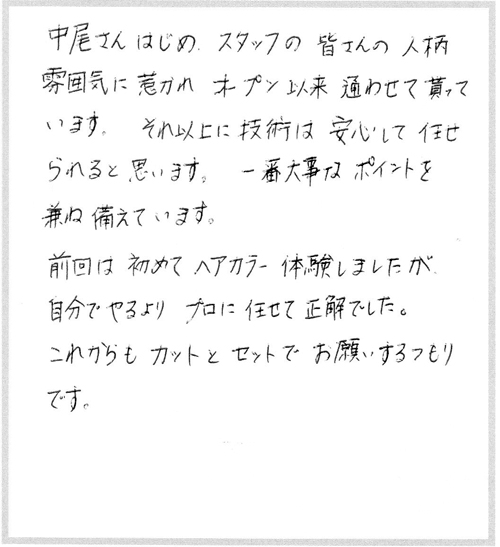 中尾さんはじめ、スタッフの皆さんの人柄
雰囲気に惹かれオープン以来通わせて貰って
います。それ以上に技術は安心して任せ
られると思います。一番大事なポイントを
兼ね備えています。
前回は初めてヘアカラー体験しましたが、
自分でやるよりプロに任せて正解でした。
これからもカットとセットでお願いするつもり
です。